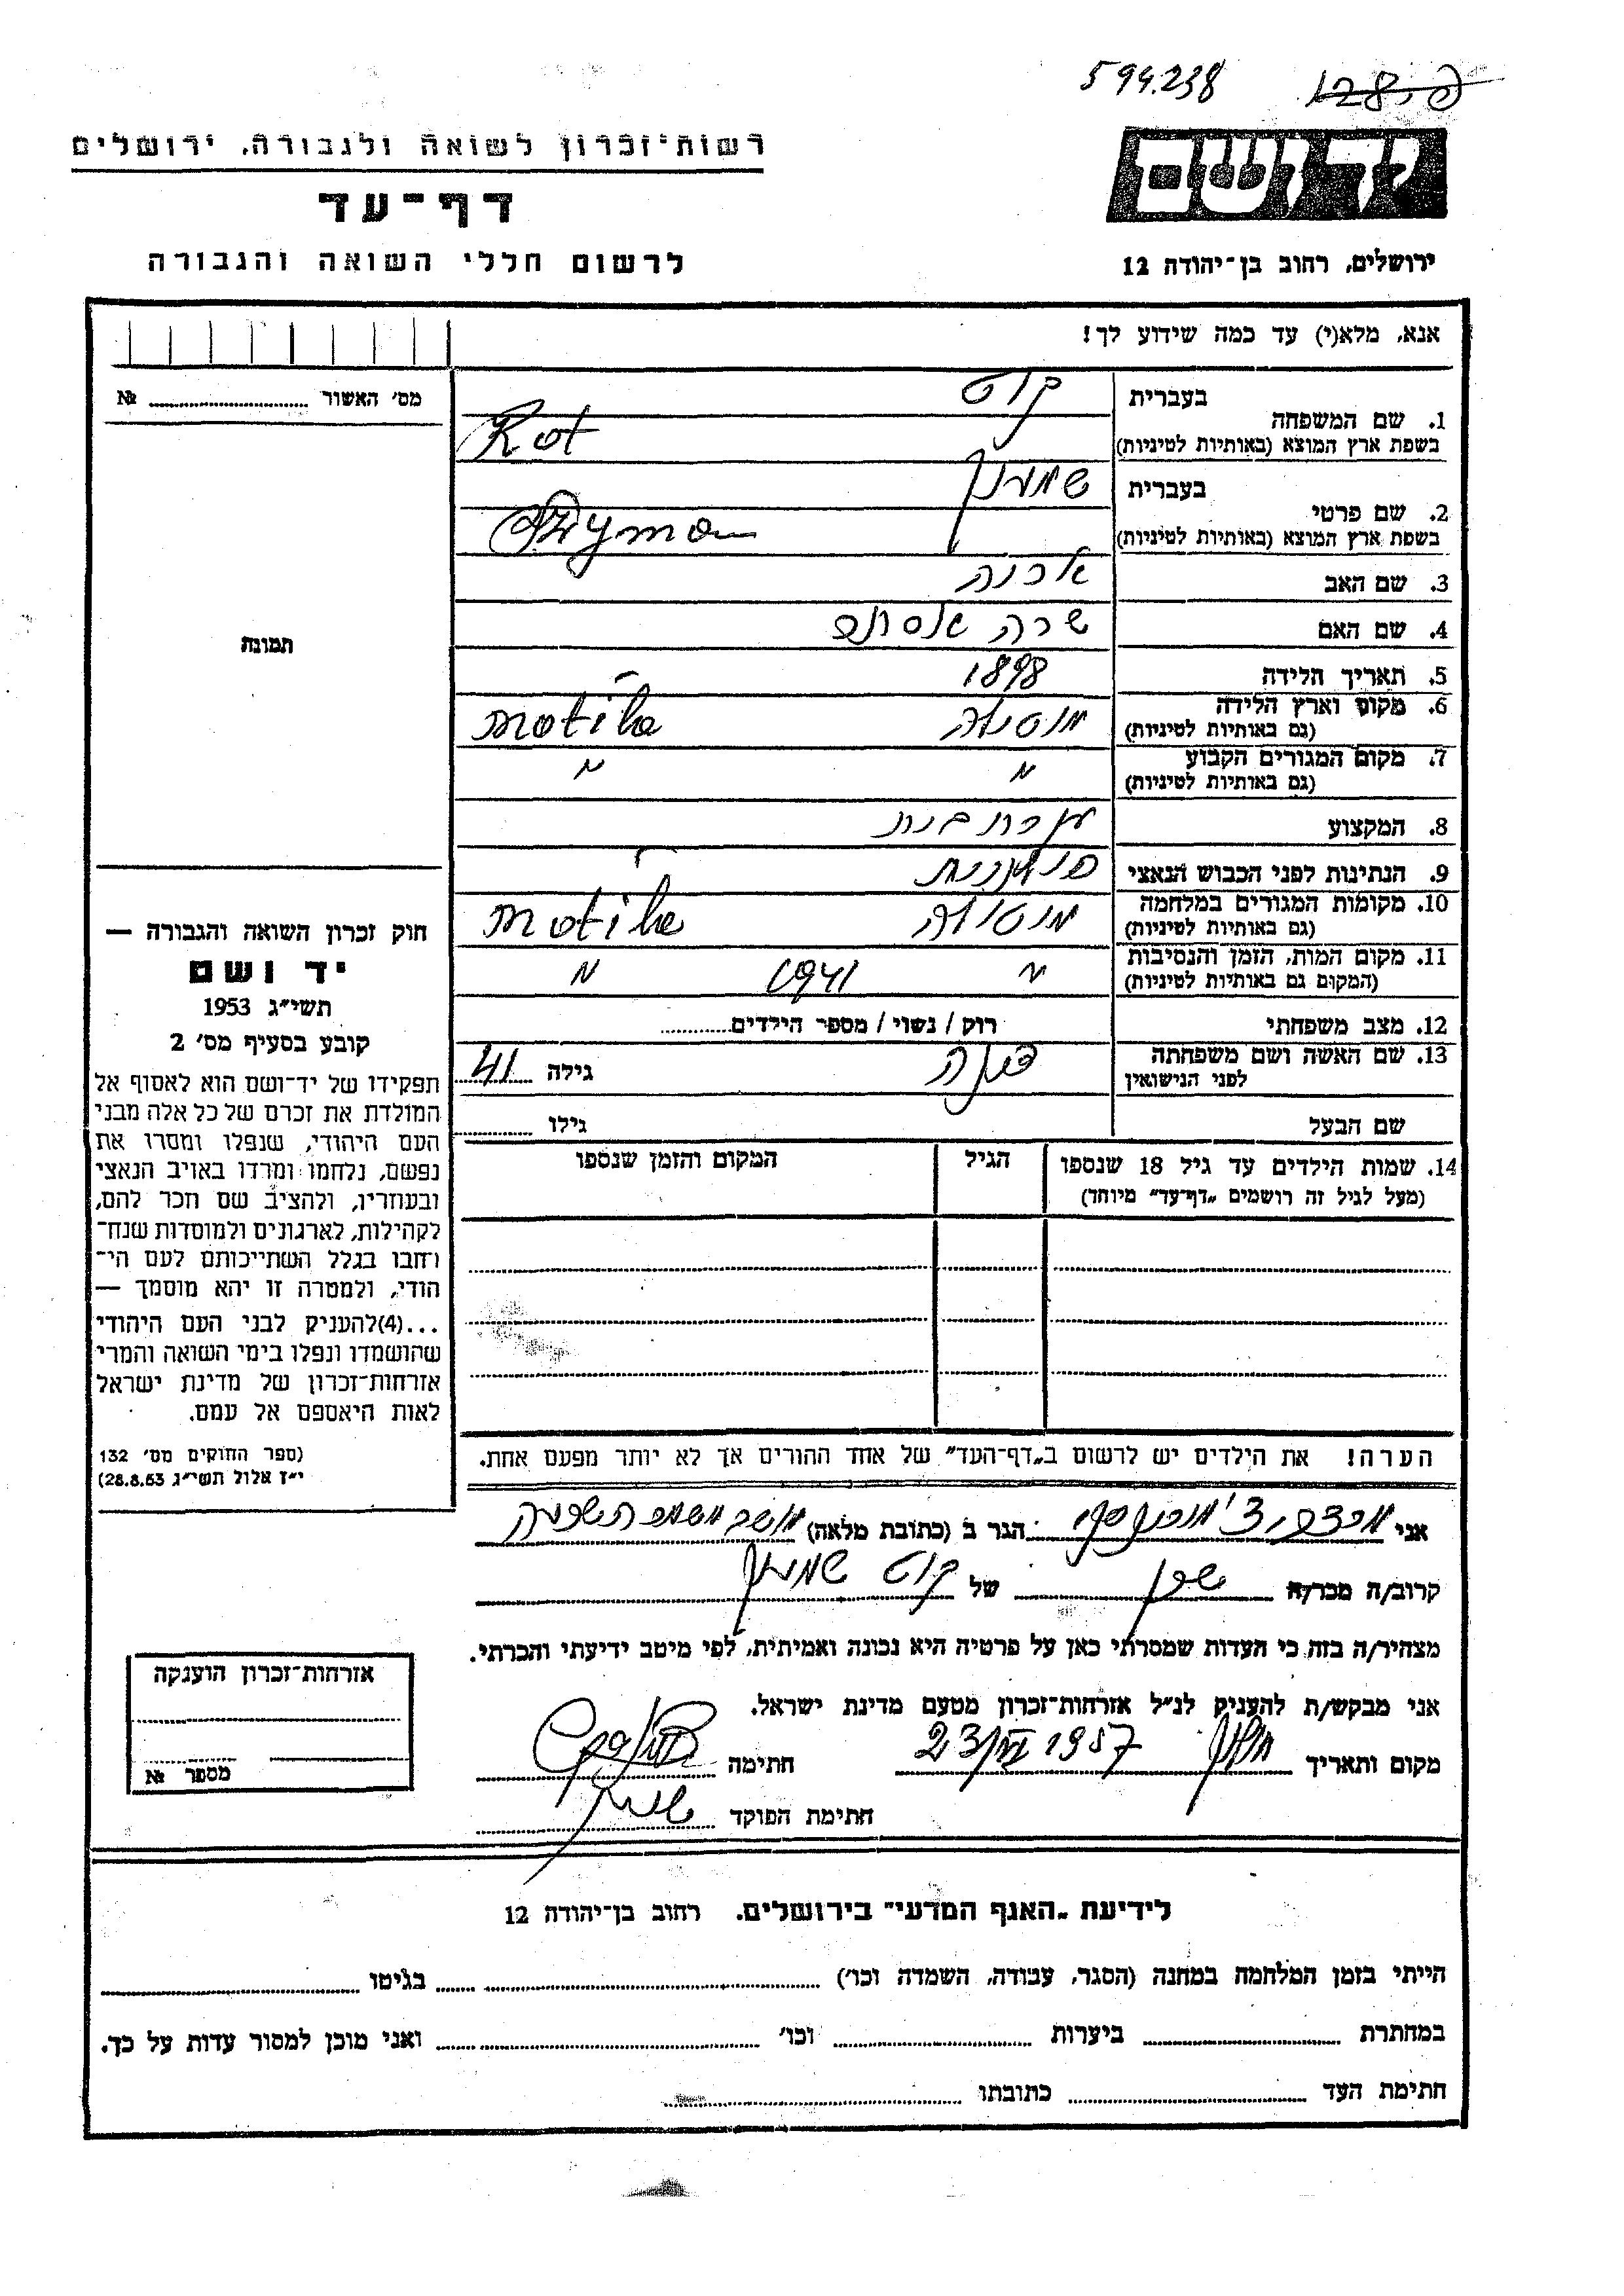 594.238
128.פ
רשות־זכרון לשואה ולגבורה, ירושלים
דף־עד
לרשום חללי השואה והגבורה
יד ושם
ירושלים, רחוב בן־יהודה 12
אנא, מלא(י) עד כמה שידוע לך!
מס׳ האשור № 
1. שם המשפחה
בעברית קוט
בשפת ארץ המוצא (באותיות לטיניות) Kot
2. שם פרטי
בעברית שמעון
בשפת ארץ המוצא (באותיות לטיניות)
3. שם האב
4. שם האם שרה
5. תאריך הלידה 1898
6. מקום וארץ הלידה
(גם באותיות לטיניות)
7. מקום המגורים הקבוע
(גם באותיות לטיניות) " "
8. המקצוע עקרת בית
9. הנתינות לפני הכבוש הנאצי פולנית
10. מקומות המגורים במלחמה
(גם באותיות לטיניות)
11. מקום המות, הזמן והנסיבות
(המקום גם באותיות לטיניות) " 1941 "
12. מצב משפחתי רוק / נשוי / מספר הילדים
13. שם האשה ושם משפחתה
לפני הנישואין גילה 41
שם הבעל גילו
14. שמות הילדים עד גיל 18 שנספו
(מעל לגיל זה רושמים „דף־עד״ מיוחד)
הגיל
המקום והזמן שנספו
תמונה
חוק זכרון השואה והגבורה —
יד ושם
תשי״ג 1953
קובע בסעיף מס׳ 2
תפקידו של יד־ושם הוא לאסוף אל
המולדת את זכרם של כל אלה מבני
העם היהודי, שנפלו ומסרו את
נפשם, נלחמו ומרדו באויב הנאצי
ובעוזריו, ולהציב שם וזכר להם,
לקהילות, לארגונים ולמוסדות שנח־
רבו בגלל השתייכותם לעם הי־
הודי, ולמטרה זו יהא מוסמך —
...(4) להעניק לבני העם היהודי
שהושמדו ונפלו בימי השואה והמרי
אזרחות־זכרון של מדינת ישראל
לאות היאספם אל עמם.
(ספר החוקים מס׳ 132
י״ז אלול תשי״ג 28.8.53)
הערה! את הילדים יש לרשום ב„דף־העד״ של אחד ההורים אך לא יותר מפעם אחת.
אני הגר ב (כתובת מלאה) מושב משמר השבעה
קרוב/ה מכר/ה שכן של קוט שמעון
מצהיר/ה בזה כי העדות שמסרתי כאן על פרטיה היא נכונה ואמיתית, לפי מיטב ידיעתי והכרתי.
אני מבקש/ת להעניק לנ״ל אזרחות־זכרון מטעם מדינת ישראל.
מקום ותאריך 1957 חתימה
חתימת הפוקד
אזרחות־זכרון הוענקה
מספר №
לידיעת „האגף המדעי״ בירושלים. רחוב בן־יהודה 12
הייתי בזמן המלחמה במחנה (הסגר, עבודה, השמדה וכו׳) בגיטו
במחתרת ביערות וכו׳ ואני מוכן למסור עדות על כך.
חתימת העד כתובתו